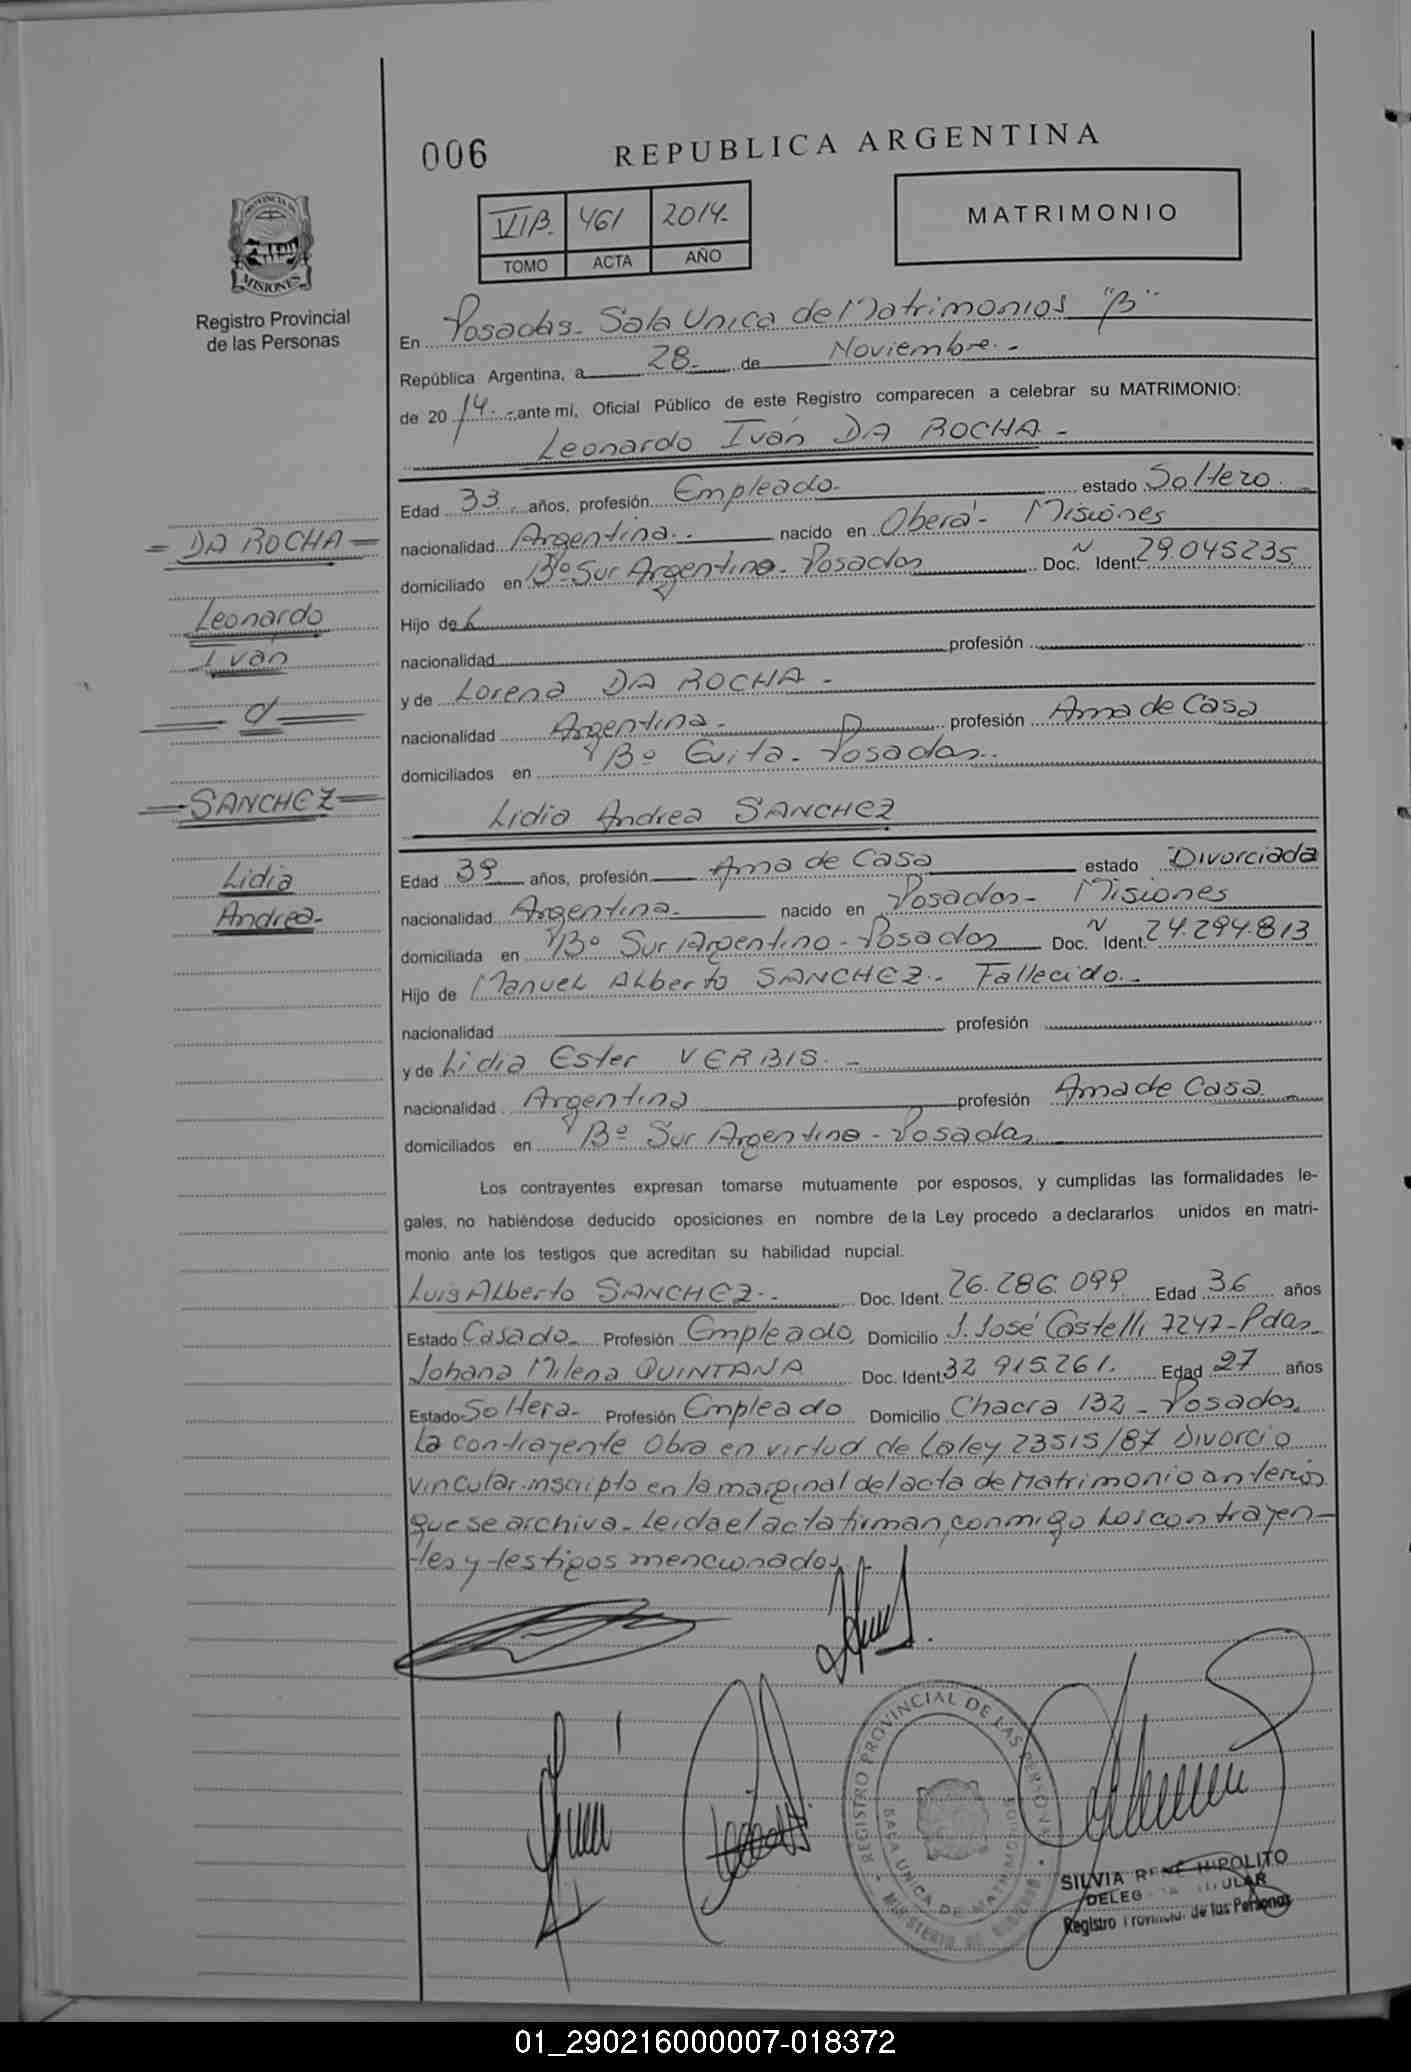 006
REPUBLICA ARGENTINA
VIB. 461 2014.
TOMO ACTA AÑO
MATRIMONIO
PROVINCIA DE
MISIONES
Registro Provincial
de las Personas
En Posadas - Sala Unica de Matrimonios "B"
República Argentina, a 28 - de Noviembre -
de 2014 - ante mí, Oficial Público de este Registro comparecen a celebrar su MATRIMONIO:
Leonardo Iván DA ROCHA -
Edad 33 años, profesión Empleado - estado Soltero
= DA ROCHA =
nacionalidad Argentina - nacido en Oberá - Misiones
domiciliado en Bº Sur Argentino - Posadas Doc. N Ident. 29.045235
Leonardo
Hijo de
Iván
nacionalidad profesión
y de Lorena DA ROCHA -
nacionalidad Argentina - profesión Ama de Casa
domiciliados en Bº Evita - Posadas -
= SANCHEZ =
Lidia Andrea SANCHEZ
Lidia
Edad 39 años, profesión Ama de Casa estado Divorciada
Andrea -
nacionalidad Argentina - nacido en Posadas - Misiones
domiciliada en Bº Sur Argentino - Posadas Doc. N Ident. 24.294.813
Hijo de Manuel Alberto SANCHEZ - Fallecido -
nacionalidad profesión
y de Lidia Ester VERBIS -
nacionalidad Argentina profesión Ama de Casa
domiciliados en Bº Sur Argentino - Posadas
Los contrayentes expresan tomarse mutuamente por esposos, y cumplidas las formalidades le-
gales, no habiéndose deducido oposiciones en nombre de la Ley procedo a declararlos unidos en matri-
monio ante los testigos que acreditan su habilidad nupcial.
Luis Alberto SANCHEZ - Doc. Ident. 26.286.099 Edad 36 años
Estado Casado - Profesión Empleado Domicilio J. José Castelli 7247 - Pdas
Johana Milena QUINTANA Doc. Ident. 32 915.261. Edad 27 años
Estado Soltera - Profesión Empleado Domicilio Chacra 132 - Posadas
La contrayente Obra en virtud de La ley 23515/87 Divorcio
vincular inscripto en la marginal del acta de Matrimonio anterior
que se archiva - Leida el acta firman conmigo Los contrayen-
tes y testigos mencionados
REGISTRO PROVINCIAL DE LAS PERSONAS
SALA UNICA DE MATRIMONIOS
SILVIA RENÉ HIPOLITO
DELEG TITULAR
Registro Provincial de las Personas
01_290216000007-018372